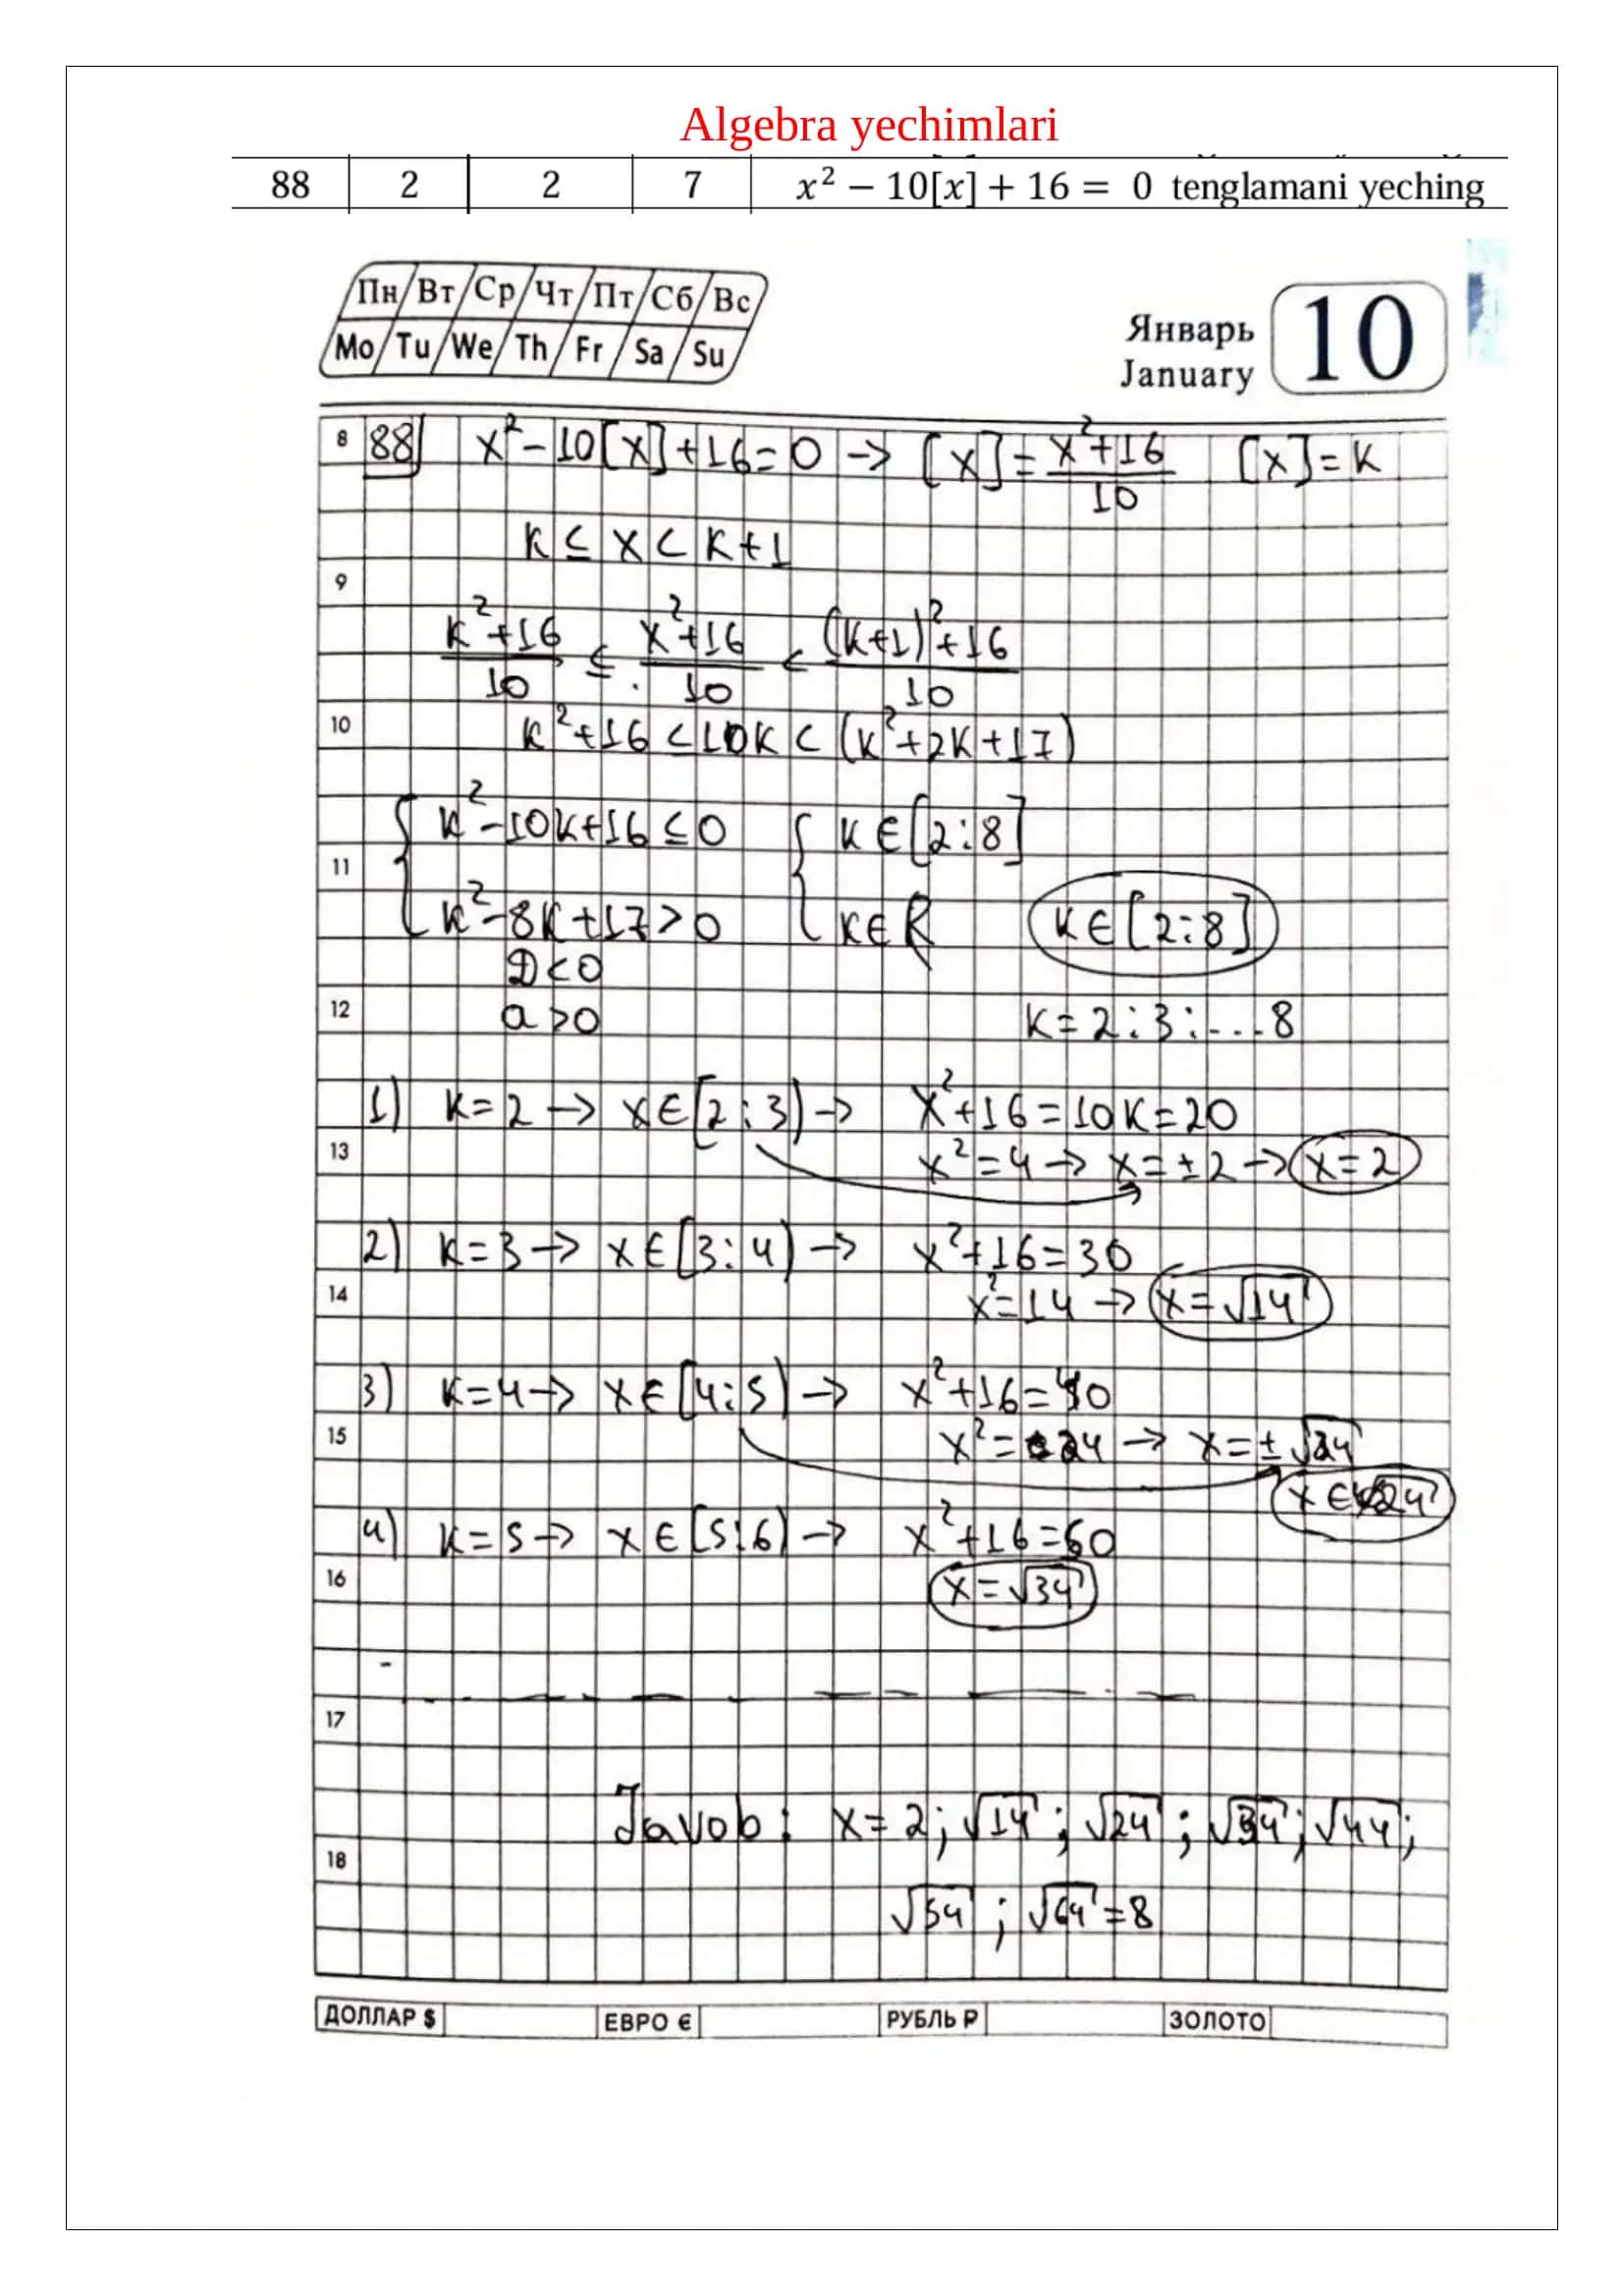 Algebra yechimlari
88 2 2 7 x² − 10[x] + 16 = 0 tenglamani yeching
Пн Вт Ср Чт Пт Сб Вс
Mo Tu We Th Fr Sa Su
Январь
January
10
8 88 x²-10[x]+16=0 -> [x]=(x²+16)/10 [x]=k
k≤x<k+1
9
(k²+16)/10 ≤ (x²+16)/10 < ((k+1)²+16)/10
10 k²+16≤10k<(k²+2k+17)
{ k²-10k+16≤0 { k∈[2:8]
11
k²-8k+17>0 k∈R k∈[2:8]
D<0
12 a>0 k=2:3:...8
1) k=2 -> x∈[2:3) -> x²+16=10k=20
13 x²=4 -> x=±2 -> x=2
2) k=3 -> x∈[3:4) -> x²+16=30
14 x²=14 -> x=√14
3) k=4 -> x∈[4:5) -> x²+16=40
15 x²=24 -> x=±√24
4) k=5 -> x∈[5:6) -> x²+16=50
16 x=√34
17
Javob: x=2; √14; √24; √34; √44;
18
√54; √64=8
ДОЛЛАР $ ЕВРО € РУБЛЬ ₽ ЗОЛОТО